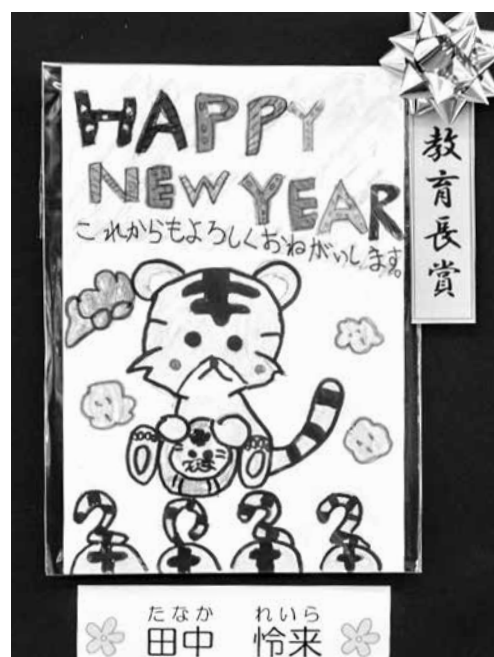 HAPPY
NEW YEAR
これからもよろしくおねがいします。
教育長賞
2022
たなか れいら
田中 怜来